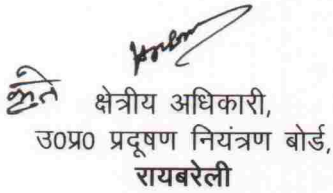 कृते क्षेत्रीय अधिकारी,
उ0प्र0 प्रदूषण नियंत्रण बोर्ड,
रायबरेली